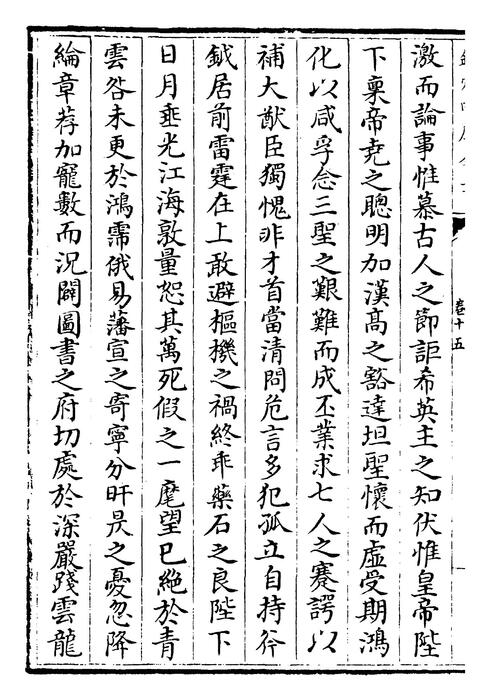 卷十五
激而論事惟慕古人之節詎希英主之知伏惟皇帝陛
下稟帝堯之聰明加漢高之豁達坦聖懷而虛受期鴻
化以咸孚念三聖之艱難而成丕業求七人之謇諤以
補大猷臣獨愧非才首當清問危言多犯孤立自持斧
鉞居前雷霆在上敢避樞機之禍終乖藥石之良陛下
日月垂光江海敦量恕其萬死假之一麾望已絶於青
雲咎未更於鴻霈俄易藩宣之寄寧分旰昃之憂忽降
綸章荐加寵數而況闢圖書之府切處於深嚴踐雲龍